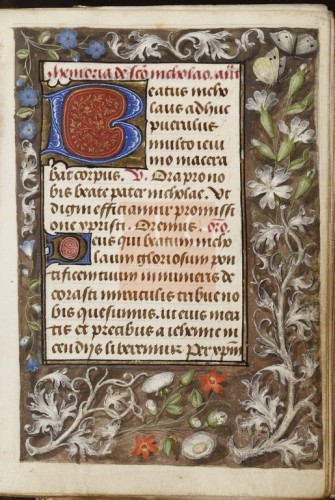 Memoria de sco nicholao. ant
Beatus nicho
laus adhuc
puerulus
multo ieiu
nio macera
bat corpus. V. Ora pro no
bis beate pater nicholae. Ut
digni efficiamur promissi
one xpristi. Oremus. oro.
Deus qui beatum nicho
laum gloriosum pon
tificem tuum innumeris de
corasti miraculis tribue no
bis quesumus. ut eius meri
tis et precibus a iehenne in
cendijs liberemur Per xpm